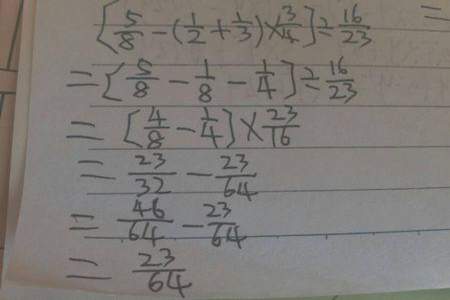 [5/8 - (1/2 + 1/3) × 3/4] ÷ 16/23 =
= [5/8 - 1/8 - 1/4] ÷ 16/23
= [4/8 - 1/4] × 23/16
= 23/32 - 23/64
= 46/64 - 23/64
= 23/64